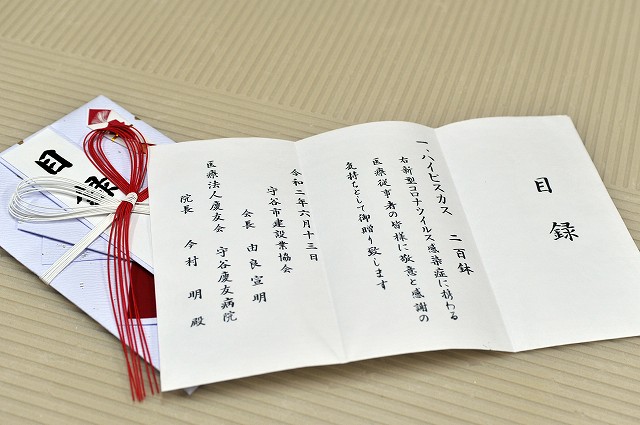 目録
一、ハイビスカス 二百鉢
右新型コロナウイルス感染症に携わる
医療従事者の皆様に敬意と感謝の
気持ちとして御贈り致します
令和二年六月十三日
守谷市建設業協会
会長 由良宣明
医療法人慶友会 守谷慶友病院
院長 今村 明 殿
目録